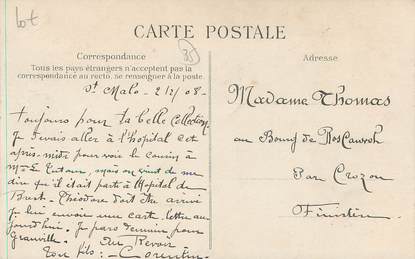 lot
35
CARTE POSTALE
Correspondance
Tous les pays étrangers n'acceptent pas la
correspondance au recto, se renseigner à la poste.
St Malo - 2/1/08 -
Toujours pour ta belle collection
Je vais aller à l'hôpital cet
après-midi pour voir le cousin à
mais on vient de me
dire qu'il était parti à l'hôpital de
Brest. Théodore doit être arrivé
Je lui envoie une carte-lettre au
jourd'hui. Je pars demain pour
Granville. Au Revoir
ton fils: Corentin
Adresse
Madame Thomas
au Bourg de Roscanvel
Par Crozon
Finistère